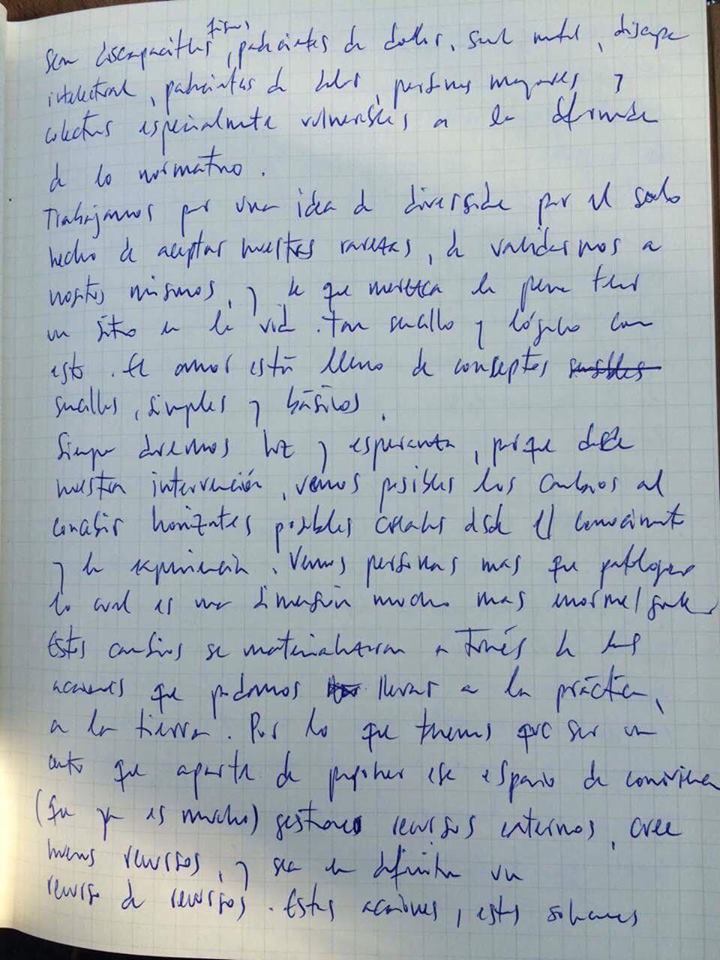 físicos
Sean discapacitados, padecientes de dolor, salud mental, discapa
intelectual, padecientes de dolor, personas mayores y
colectivos especialmente vulnerables a la
de lo normativo.
Trabajamos por una idea de diversidad por el solo
hecho de aceptar nuestras rarezas, de validarnos a
nosotros mismos, y de que merezca la pena tener
un sitio en la vida. Tan sencillo y lógico como
esto. El amor está lleno de conceptos
sencillos, simples y básicos.
Siempre daremos luz y esperanza, porque desde
nuestra intervención, vemos posibles los cambios al
concebir horizontes posibles creados desde el conocimiento
y la experiencia. Vemos personas mas que patologías
lo cual es una dimensión mucho mas enorme/grande
Estos cambios se materializaran a través de las
acciones que podamos llevar a la práctica,
a la tierra. Por lo que tenemos que ser un
ente que aparte de ese espacio de convivencia
(que ya es mucho) gestione recursos externos, cree
nuevos recursos, y sea en definitiva un
recurso de recursos. Estas acciones, estos